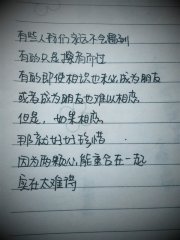 有些人我们永远不会遇到
有的只是擦肩而过
有的即使相识也未必成为朋友
或者成为朋友也难以相恋
但是，如果相恋
那就好好珍惜
因为两颗心能重合在一起
实在太难得